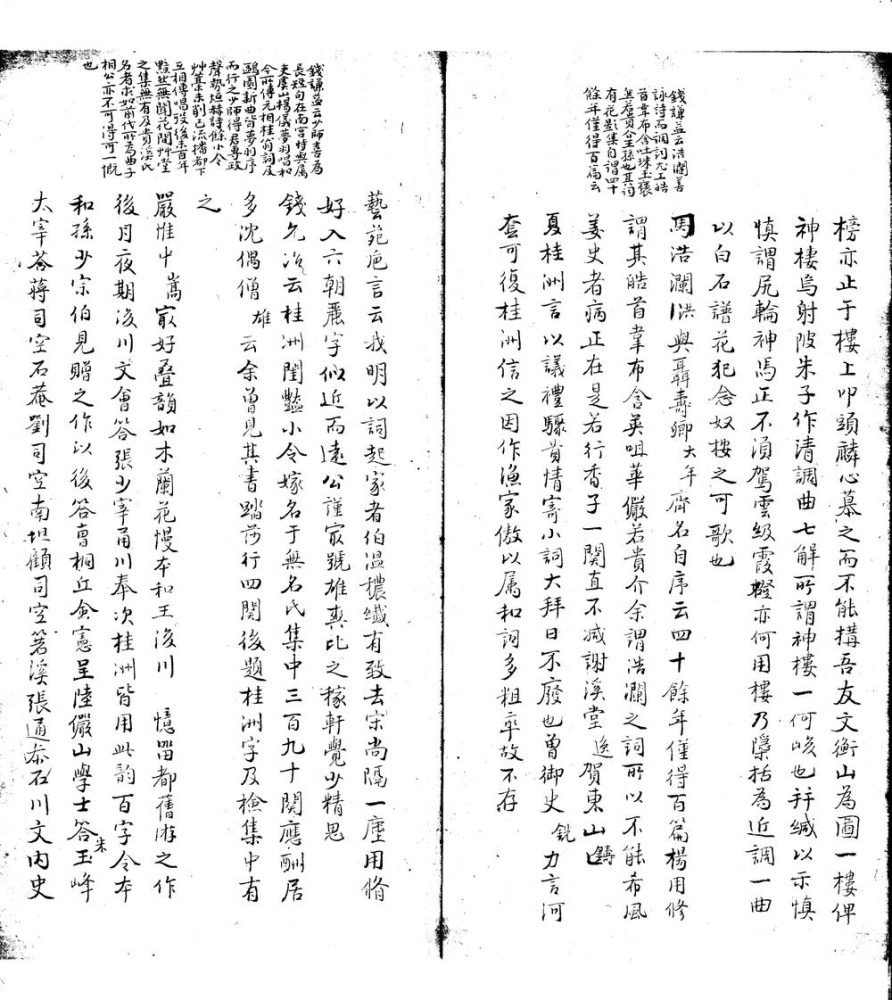 榜亦止于樓上叩頭觾心慕之而不能搆吾友文衡山為圖一樓俾
神樓烏射陂朱子作清調曲七解所謂神樓一何峻也并緘以示慎
慎謂尻輪神馮正不須駕雲級霞磴亦何用樓乃櫽括為近調一曲
以白石譜花犯念奴按之可歌也
馬浩瀾洪與聶壽卿大年齊名自序云四十餘年僅得百篇楊用修
謂其皓首韋布含英咀華儼若貴介余謂浩瀾之詞所以不能希風
姜史者病正在是若行香子一闋直不減謝溪堂逸賀東山鑄
夏桂洲言以議禮驟貴情寄小詞大拜日不廢也曾御史銑力言河
套可復桂洲信之因作漁家傲以属和詞多粗率故不存
錢謙益云浩瀾善
詠詩而調詞尤工皓
首韋布含吐珠玉錦
與若貴介王孫也其詞
有花影集自謂四十
餘年僅得百篇云
藝苑巵言云我明以詞起家者伯温穠纖有致去宋尚隔一塵用脩
好入六朝麗字似近而遠公謹最號雄爽比之稼軒覺少精思
錢允治云桂洲閨豔小令嫁名于無名氏集中三百九十闋應酬居
多沈偶僧雄云余曽見其書踏莎行四闋後題桂洲字及檢集中有
之
嚴惟中嵩最好疊韻如木蘭花慢本和王浚川憶留都舊游之作
後月夜期浚川文會答張少宰甬川奉次桂洲皆用此韵百字令本
和孫少宗伯見贈之作以後答曹桐丘僉憲呈陸儼山學士答朱玉峰
太宰答蔣司空石菴劉司空南坦顧司空箬溪張通叅石川文内史
錢謙益云少師喜為
長短句在南宮時與属
吏虞山楊儀夢羽唱和
今所傳元相桂翁詞及
鷗園新曲皆夢羽序
而行之少師得君專政
聲勢烜赫詩餘小令
艸藁未削已流播都下
互相傳唱歿後未百年
黯然無聞花間艸堂
之集無有及貴溪氏
名者求如前代所為曲子
相公亦不可得可一慨
也